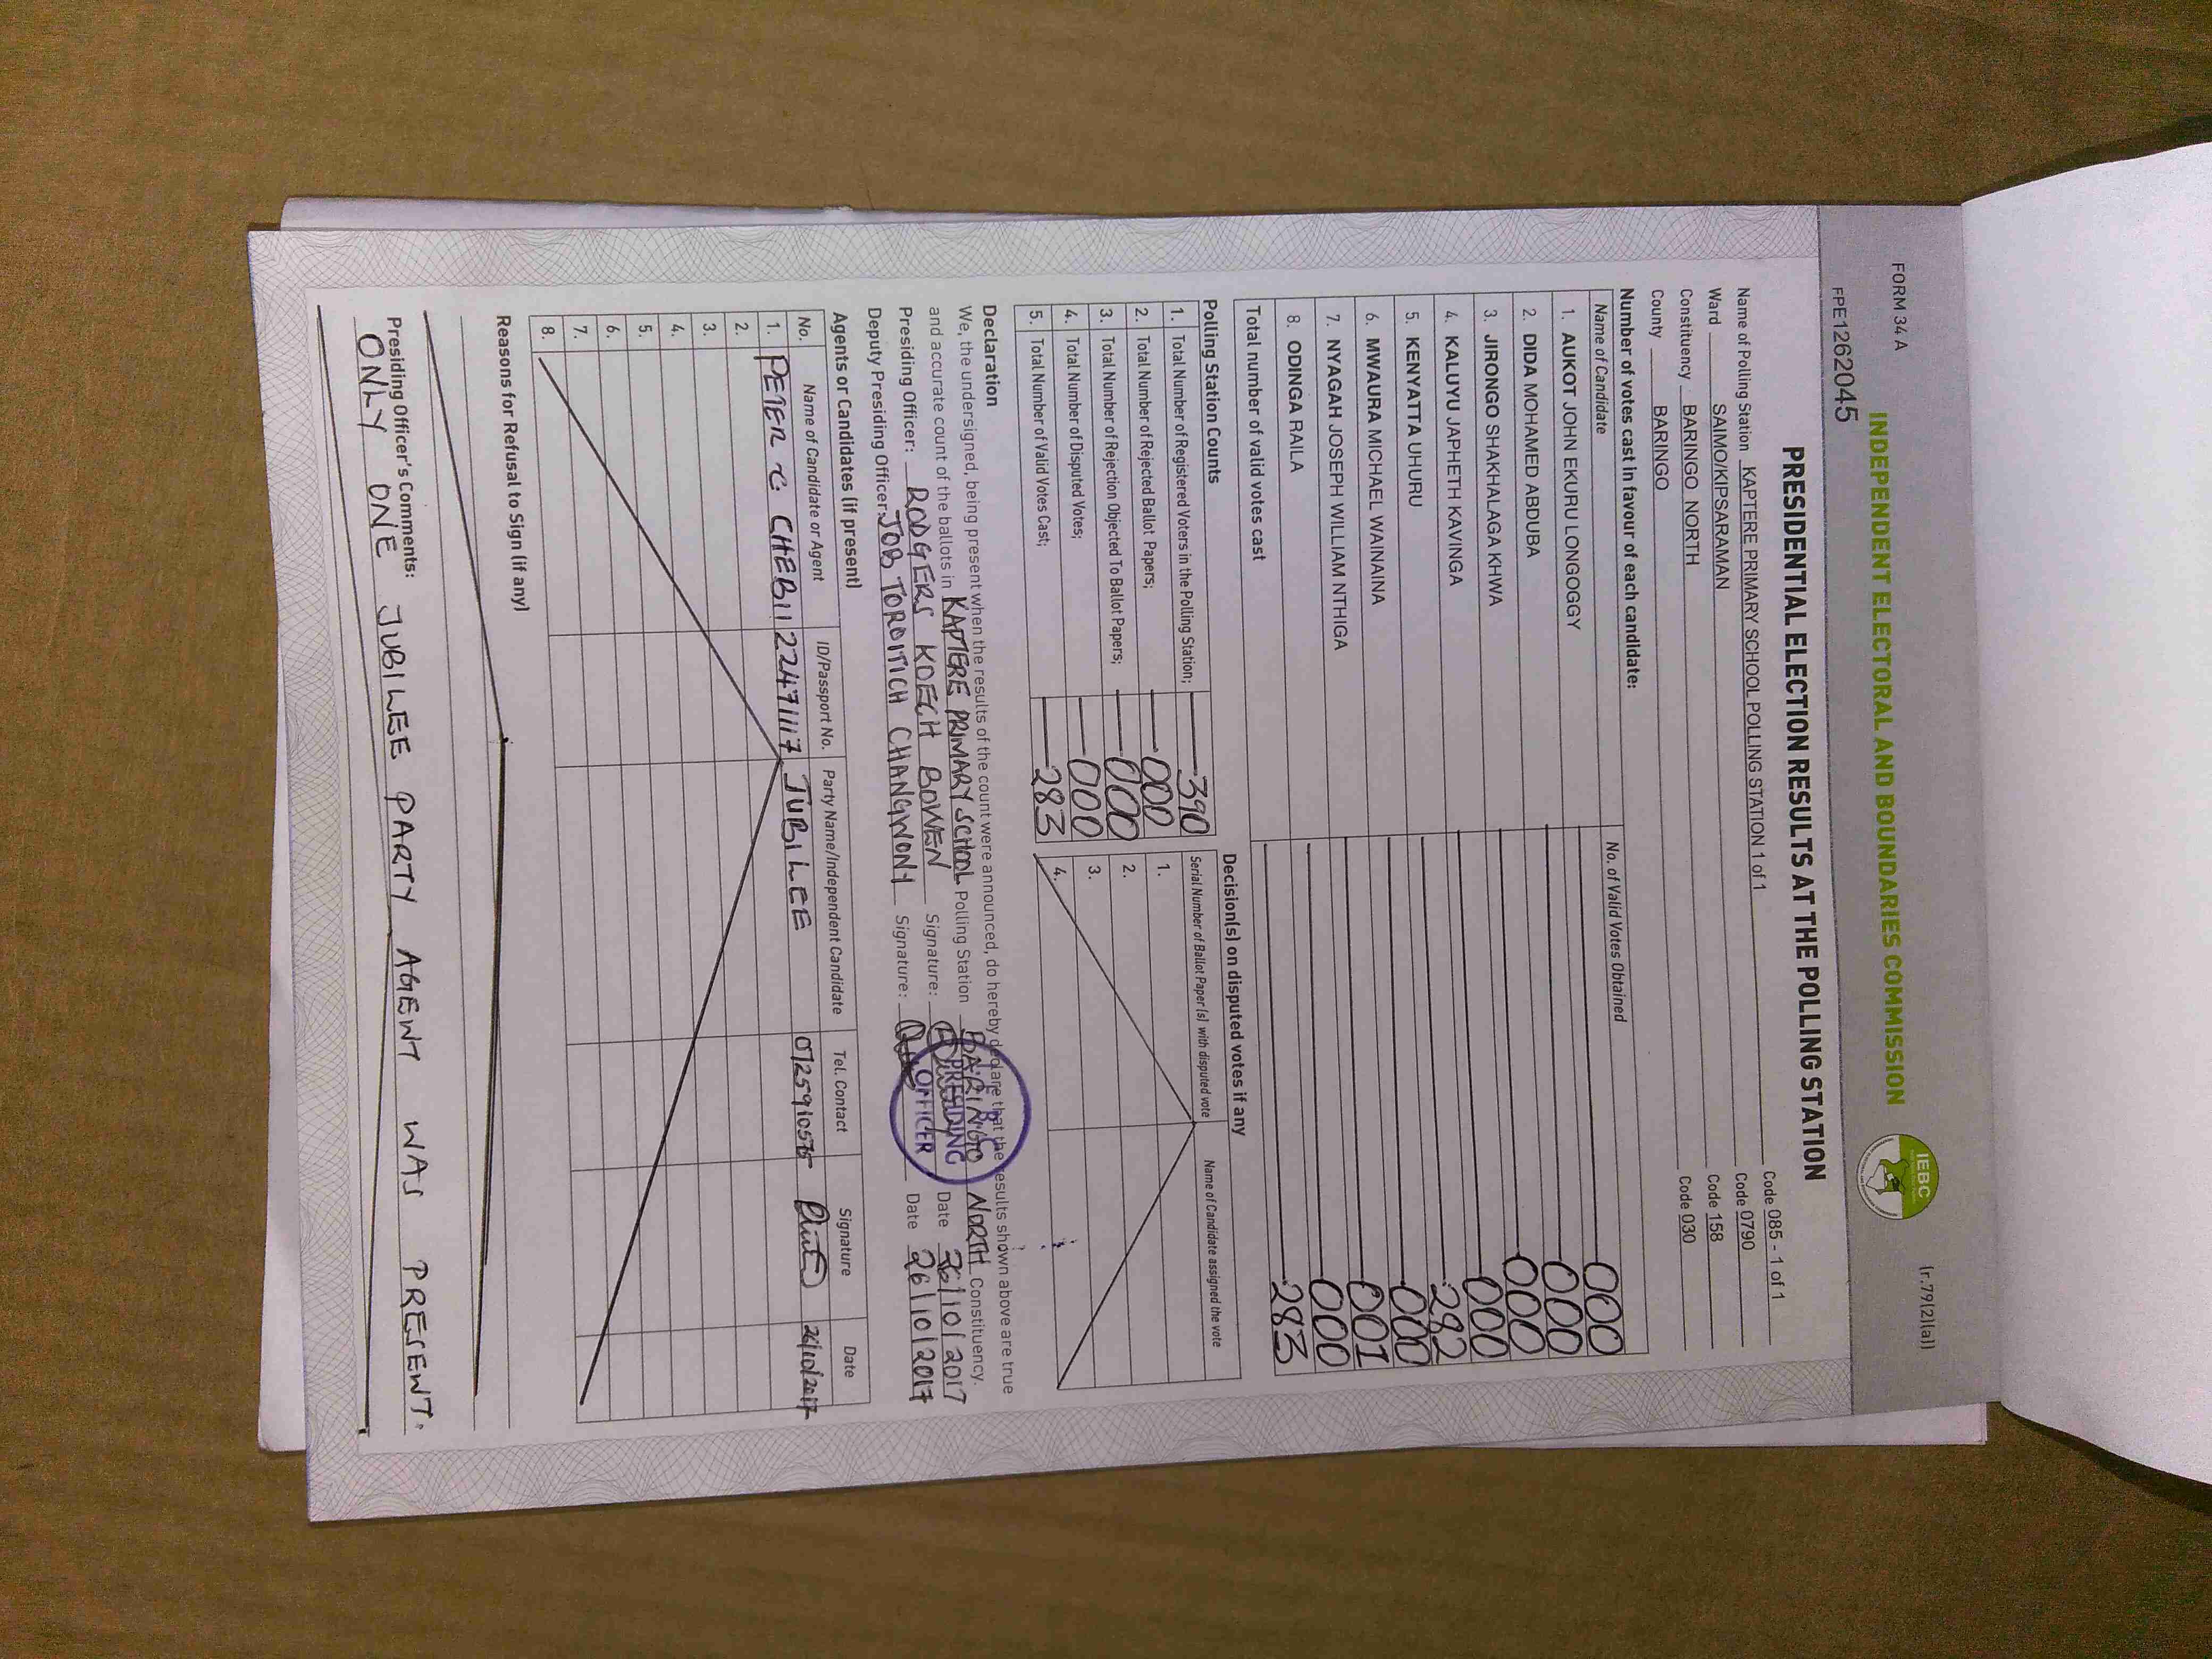 FORM 34 A
(r.79(2)(a))
INDEPENDENT ELECTORAL AND BOUNDARIES COMMISSION
IEBC
FPE1262045
PRESIDENTIAL ELECTION RESULTS AT THE POLLING STATION
Name of Polling Station KAPTERE PRIMARY SCHOOL POLLING STATION 1 of 1 Code 085 - 1 of 1
Ward SAIMO/KIPSARAMAN Code 0790
Constituency BARINGO NORTH Code 158
County BARINGO Code 030
Number of votes cast in favour of each candidate:
Name of Candidate No. of Valid Votes Obtained
1. AUKOT JOHN EKURU LONGOGGY 000
2. DIDA MOHAMED ABDUBA 000
3. JIRONGO SHAKHALAGA KHWA 000
4. KALUYU JAPHETH KAVINGA 000
5. KENYATTA UHURU 282
6. MWAURA MICHAEL WAINAINA 000
7. NYAGAH JOSEPH WILLIAM NTHIGA 001
8. ODINGA RAILA 000
Total number of valid votes cast 283
Polling Station Counts
1. Total Number of Registered Voters in the Polling Station; 390
2. Total Number of Rejected Ballot Papers; 000
3. Total Number of Rejection Objected To Ballot Papers; 000
4. Total Number of Disputed Votes; 000
5. Total Number of Valid Votes Cast; 283
Decision(s) on disputed votes if any
Serial Number of Ballot Paper(s) with disputed vote Name of Candidate assigned the vote
1.
2.
3.
4.
Declaration
We, the undersigned, being present when the results of the count were announced, do hereby declare that the results shown above are true
and accurate count of the ballots in KAPTERE PRIMARY SCHOOL Polling Station BARINGO NORTH Constituency.
Presiding Officer: RODGERS KOECH BOWEN Signature: Date 26/10/2017
Deputy Presiding Officer: JOB TOROITICH CHANGWONY Signature: Date 26/10/2017
PRESIDING
OFFICER
Agents or Candidates (if present)
No. Name of Candidate or Agent ID/Passport No. Party Name/Independent Candidate Tel. Contact Signature Date
1. PETER C. CHEBII JUBILEE 26/10/2017
2.
3.
4.
5.
6.
7.
8.
Reasons for Refusal to Sign (if any)
Presiding Officer's Comments:
ONLY ONE JUBILEE PARTY AGENT WAS PRESENT.